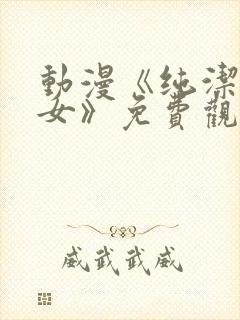 動漫《纯潔
女》免費觀
威武武威